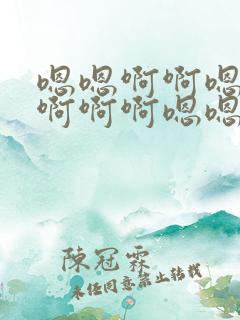 嗯嗯啊啊嗯
啊啊啊嗯嗯
陳冠霖
未经同意禁止转载